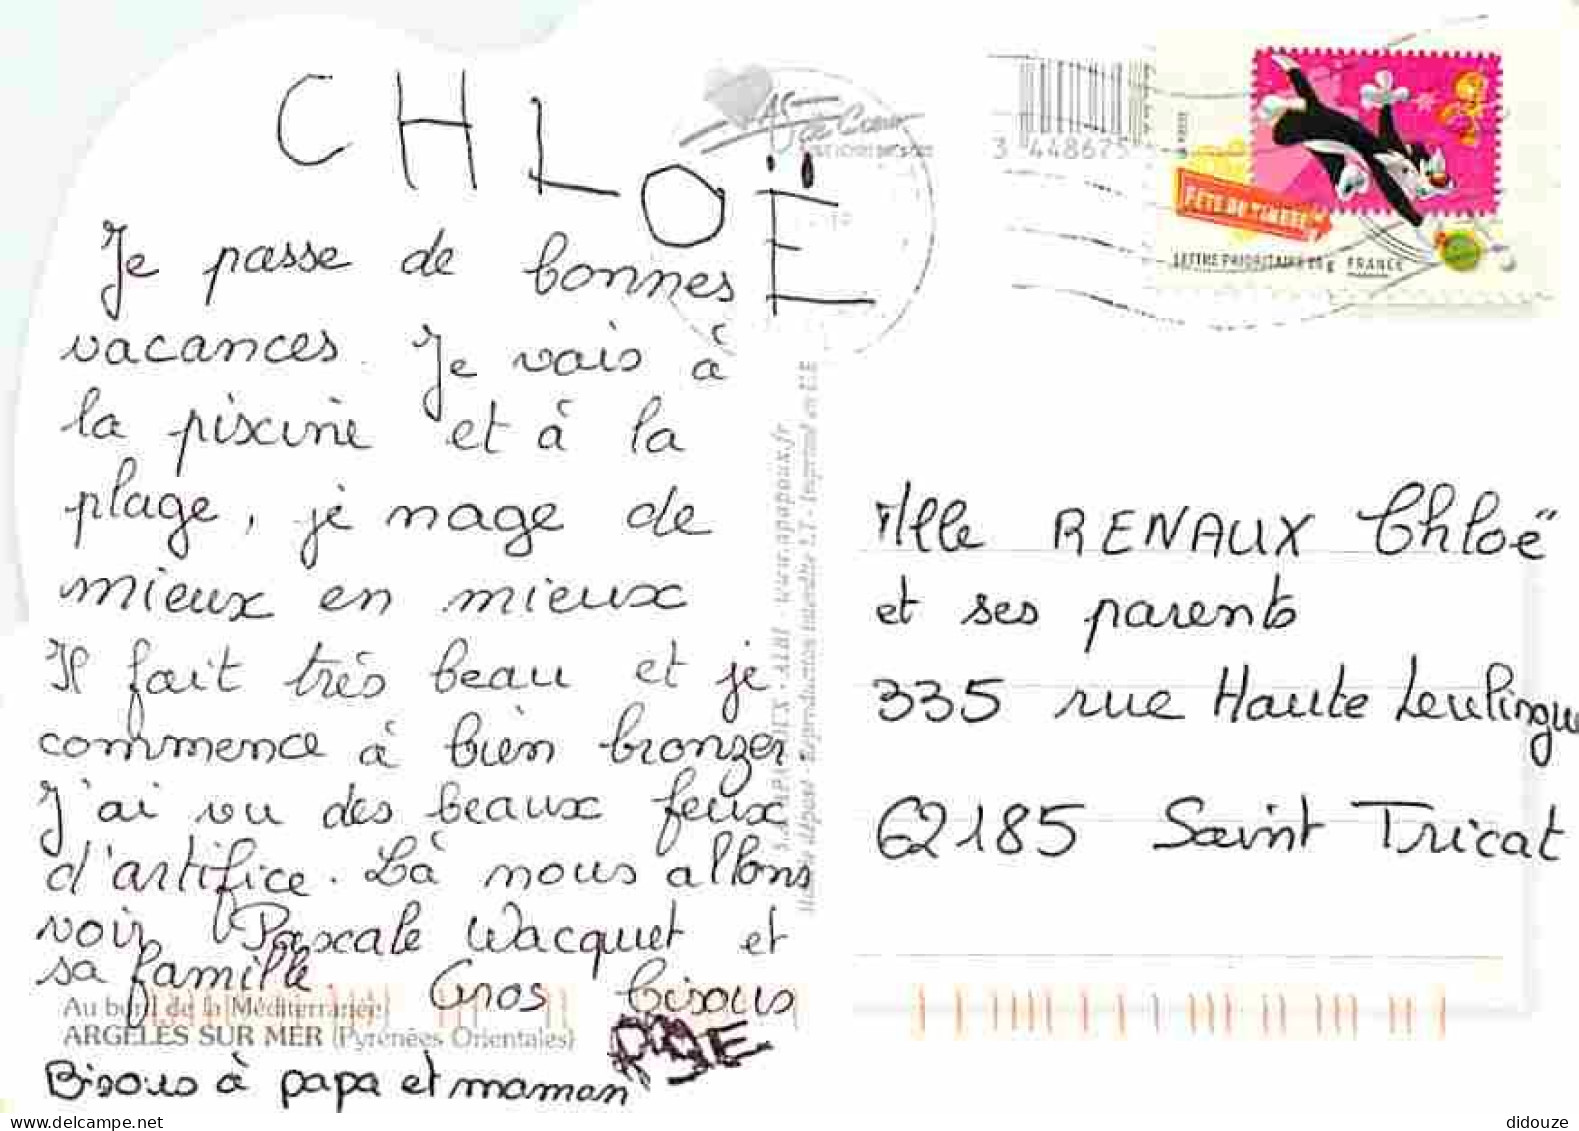 CHLOË
Je passe de bonnes
vacances. Je vais à
la piscine et à la
plage, je nage de
mieux en mieux
Il fait très beau et je
commence à bien bronzer
J'ai vu des beaux feux
d'artifice. Là nous allons
voir Pascale Wacquet et
sa famille. Gros bisous
Au bord de la Méditerranée
ARGELÈS SUR MER (Pyrénées Orientales)
Bisous à papa et maman
AS de Cœur
3 448675
FÊTE DU TIMBRE
LETTRE PRIORITAIRE 20g FRANCE
S.A. APA-POUX - ALBI - www.apapoux.fr
dépôt - Reproduction interdite LT - Imprimé en U.E
Mlle RENAUX Chloë
et ses parents
335 rue Haute Leulingue
62185 Saint Tricat
didouze